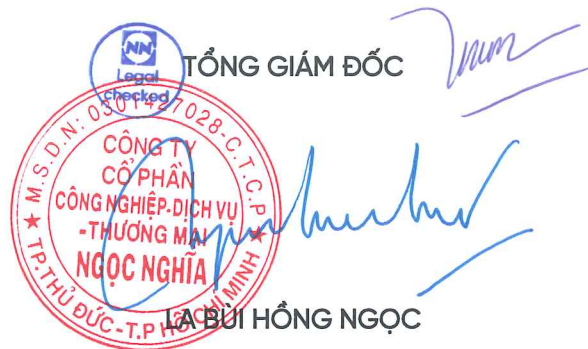 NN
Legal
checked
TỔNG GIÁM ĐỐC
M.S.D.N: 0301427028-C.T.C.P
CÔNG TY
CỔ PHẦN
CÔNG NGHIỆP-DỊCH VỤ
-THƯƠNG MẠI
NGỌC NGHĨA
TP.THỦ ĐỨC-T.P HỒ CHÍ MINH
LA BÙI HỒNG NGỌC